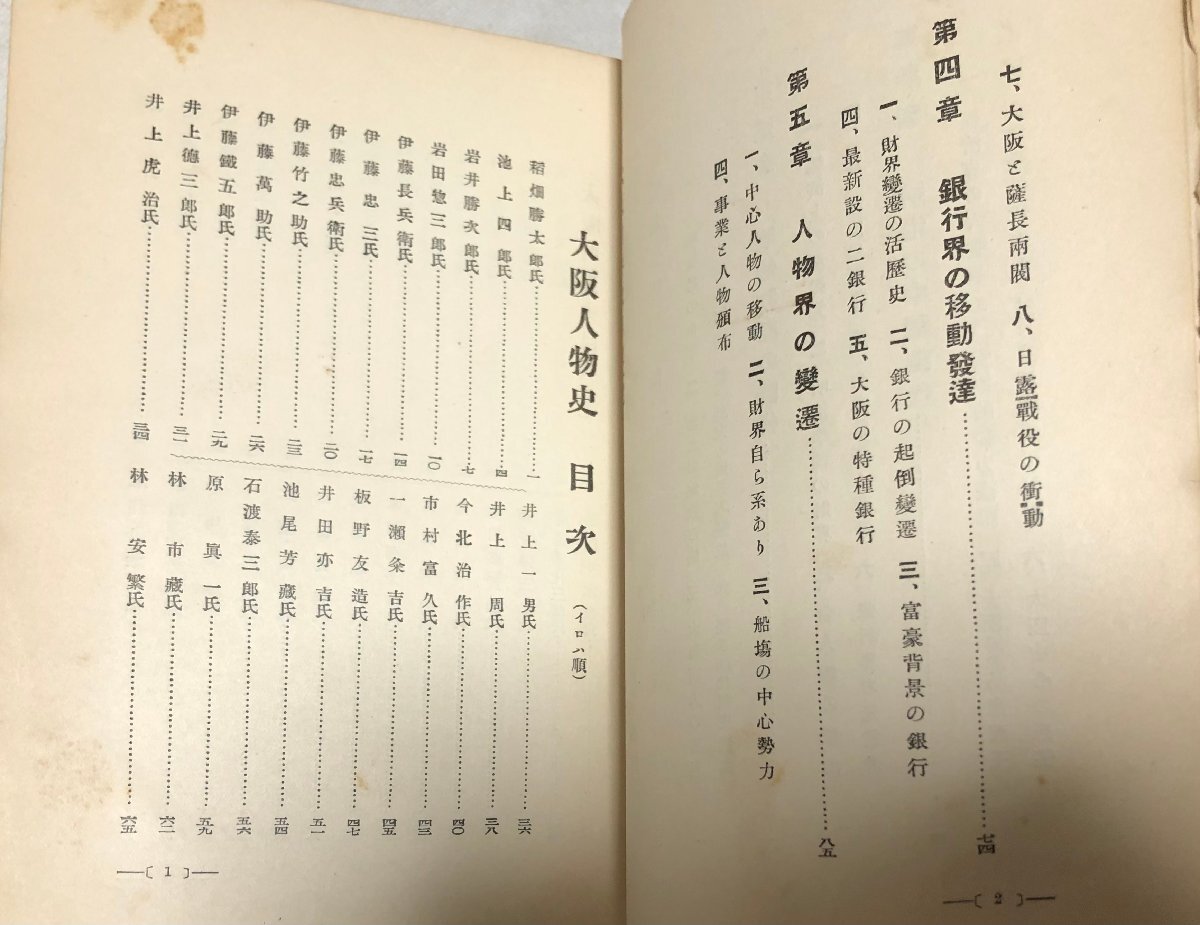 七、大阪と薩長兩閥 八、日露戰役の衝動
第四章 銀行界の移動發達……七四
一、財界變遷の活歷史 二、銀行の起倒變遷 三、富豪背景の銀行
四、最新設の二銀行 五、大阪の特種銀行
第五章 人物界の變遷……八五
一、中心人物の移動 二、財界自ら系あり 三、船場の中心勢力
四、事業と人物頒布
—〔 2 〕—
大阪人物史 目次 (イロハ順)
稻畑勝太郎氏……一
池上四郎氏……四
岩井勝次郎氏……七
岩田惣三郎氏……一〇
伊藤長兵衛氏……一四
伊藤忠三氏……一七
伊藤忠兵衛氏……二〇
伊藤竹之助氏……二三
伊藤萬助氏……二六
伊藤鐵五郎氏……二九
井上德三郎氏……三一
井上虎治氏……三四
井上一男氏……三六
井上周氏……三八
今北治作氏……四〇
市村富久氏……四三
一瀨粂吉氏……四五
板野友造氏……四七
井田亦吉氏……五一
池尾芳藏氏……五四
石渡泰三郎氏……五六
原眞一氏……五九
林市藏氏……六二
林安繁氏……六五
—〔 1 〕—